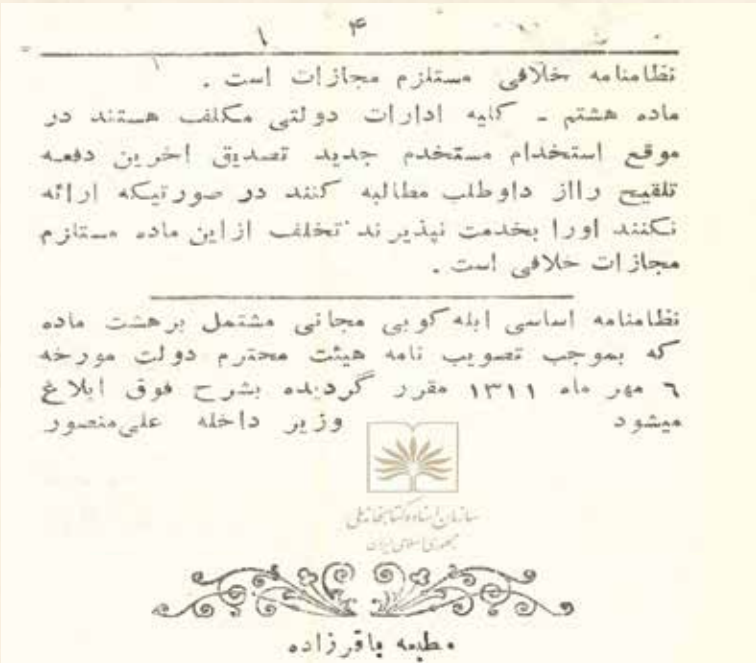 ۴
نظامنامه خلافی مستلزم مجازات است .
ماده هشتم ـ کلیه ادارات دولتی مکلف هستند در
موقع استخدام مستخدم جدید تصدیق اخرین دفعه
تلقیح رااز داوطلب مطالبه کنند در صورتیکه ارائه
نکنند اورا بخدمت نپذیرند تخلف ازاین ماده مستلزم
مجازات خلافی است .
نظامنامه اساسی ابله کوبی مجانی مشتمل برهشت ماده
که بموجب تصویب نامه هیئت محترم دولت مورخه
٦ مهر ماه ۱۳۱۱ مقرر گردیده بشرح فوق ابلاغ
میشود وزیر داخله علی منصور
سازمان اسناد و کتابخانه ملی
جمهوری اسلامی ایران
مطبعه باقرزاده